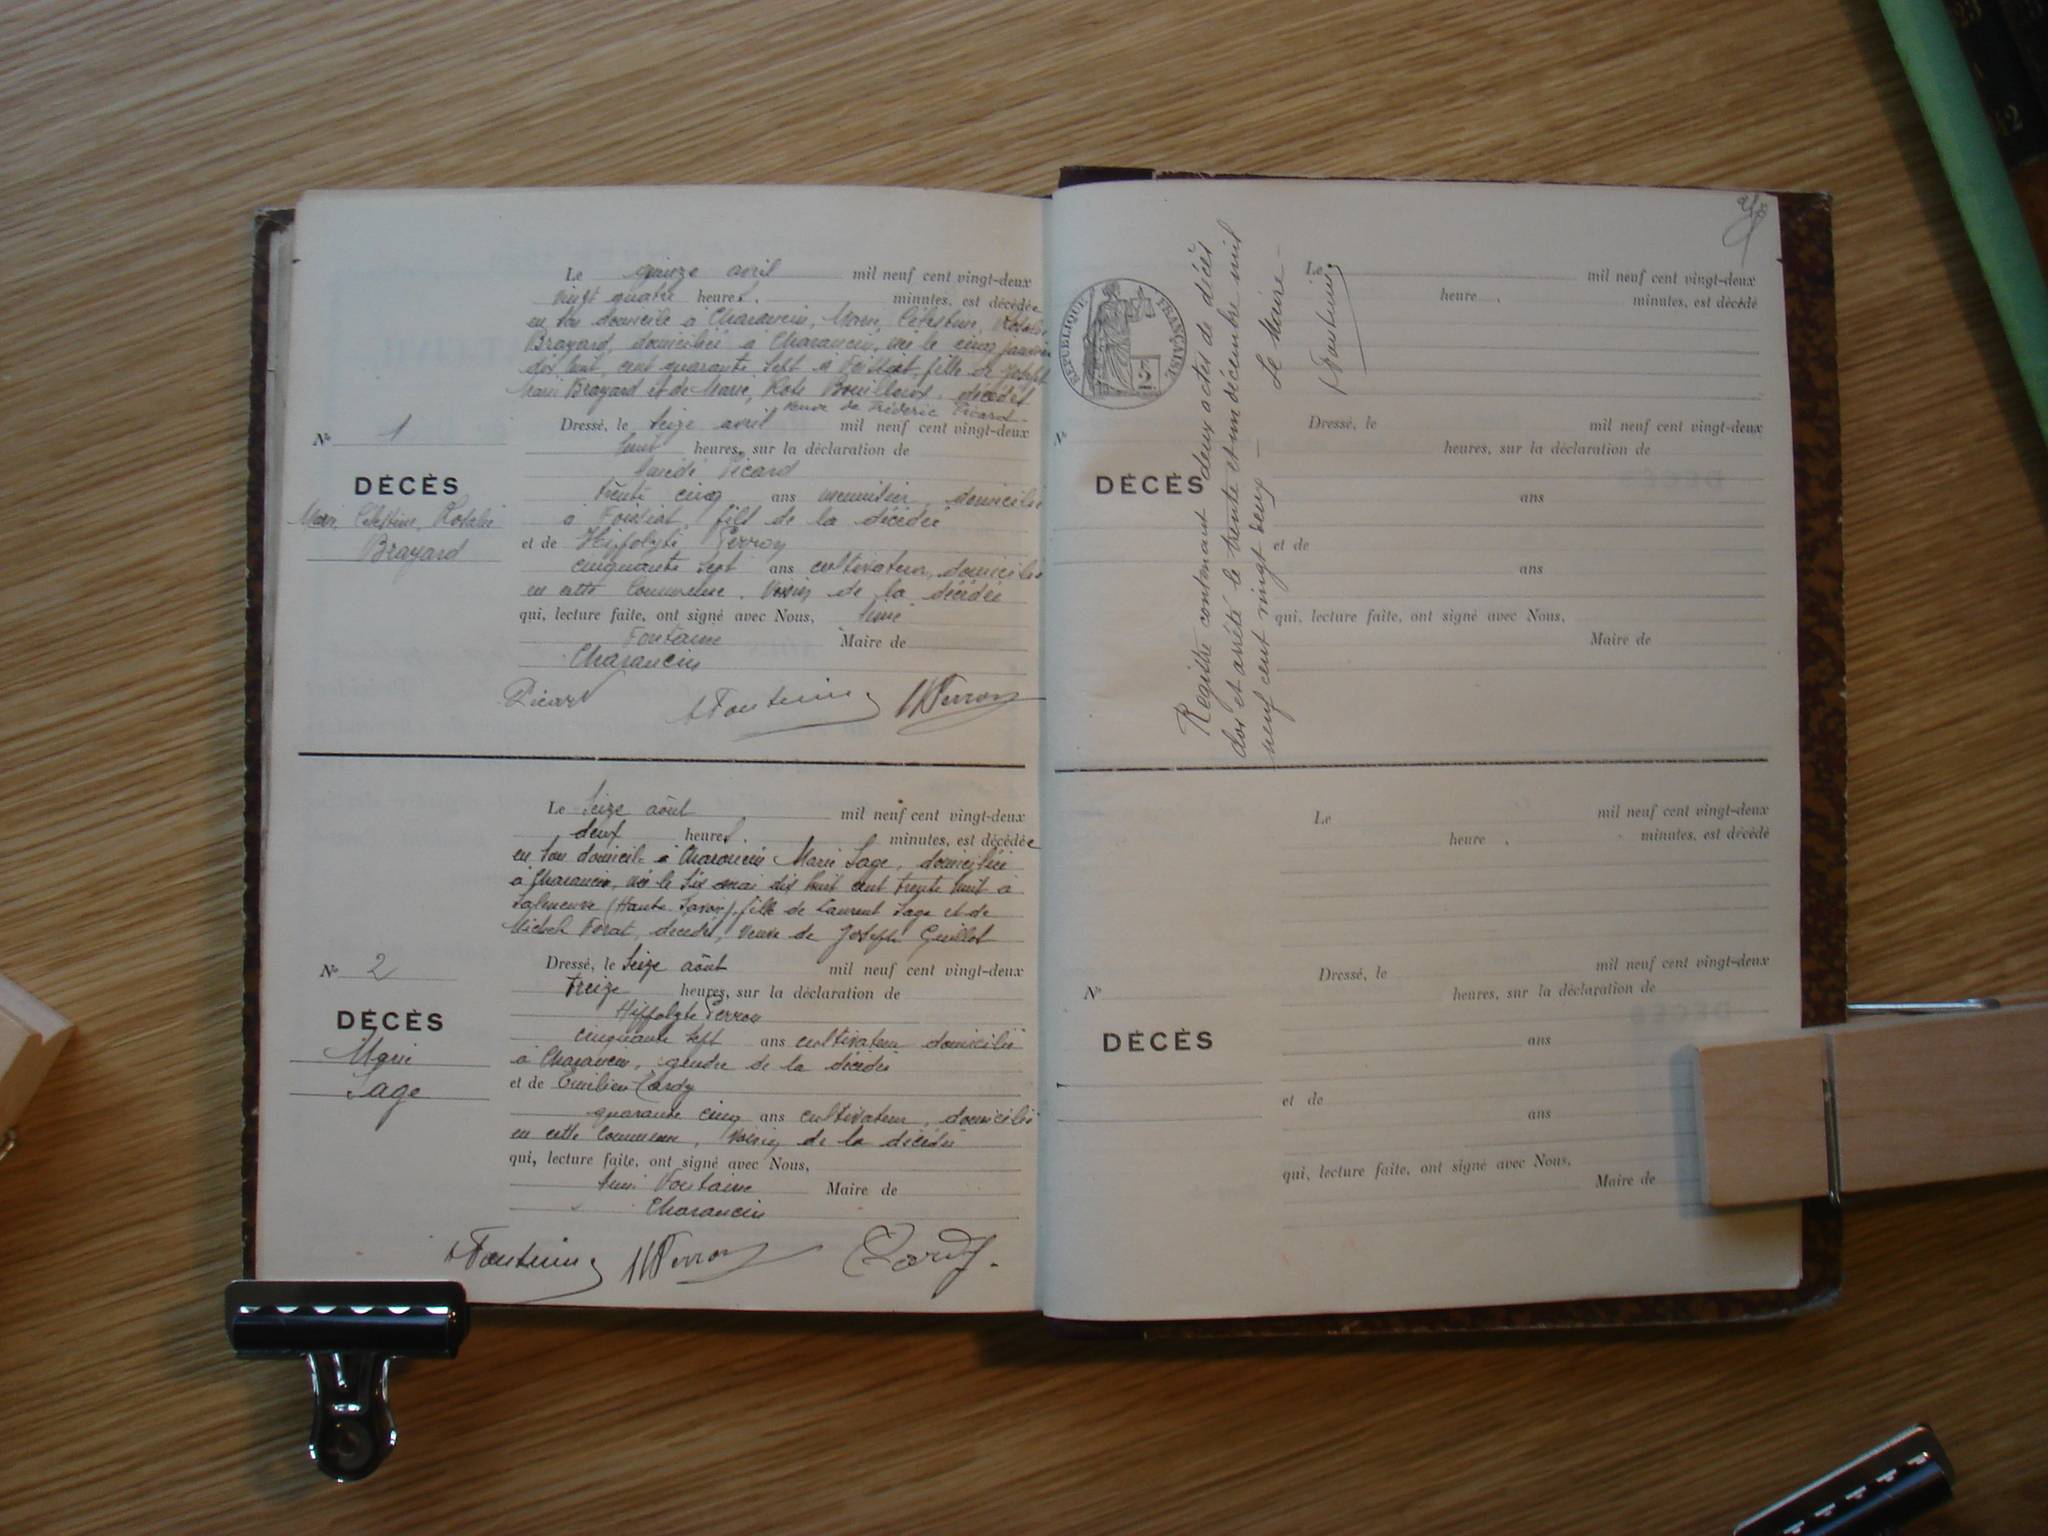 Le quinze avril mil neuf cent vingt-deux
vingt quatre heures. minutes, est décédée
en son domicile à Charancin, Marie, Célestine, Rosalie
Brayard, domiciliée à Charancin, née le cinq janvier
dix huit cent quarante sept à Foissiat, fille de Joseph
Marie Brayard et de Marie, Rose Bouilloux, décédés
veuve de Fréderic Picard
N° 1
Dressé, le seize avril mil neuf cent vingt-deux
huit heures, sur la déclaration de
Picard
DÉCÈS
Marie, Célestine, Rosalie
Brayard
trente cinq ans meunier, domicilié
à Foissiat, fils de la décédée
et de Hippolyte Perron
cinquante sept ans cultivateur, domicilié
en cette commune, voisin de la décédée
qui, lecture faite, ont signé avec Nous, Aimé
Fontaine Maire de
Charancin
Picard Fontaine HPerron
Le seize août mil neuf cent vingt-deux
deux heures. minutes, est décédée
en son domicile à Charancin Marie Sage, domiciliée
à Charancin, née le six mai dix huit cent trente huit à
(Haute Savoie), fille de Laurent Sage et de
décédés, veuve de Joseph Guillot
N° 2
Dressé, le seize août mil neuf cent vingt-deux
treize heures, sur la déclaration de
Hippolyte Perron
DÉCÈS
Marie
Sage
cinquante sept ans cultivateur domicilié
à Charancin, gendre de la décédée
et de Emilien Cardy
quarante cinq ans cultivateur, domicilié
en cette commune, voisin de la décédée
qui, lecture faite, ont signé avec Nous,
Aimé Fontaine Maire de
Charancin
Fontaine HPerron Cardy
RÉPUBLIQUE FRANÇAISE
Registre contenant deux actes de décès
clos et arrêté le trente et un décembre mil
neuf cent vingt deux
Le Maire
Fontaine
Le mil neuf cent vingt-deux
heure . minutes, est décédé
N°
Dressé, le mil neuf cent vingt-deux
heures, sur la déclaration de
DÉCÈS
ans
et de
ans
qui, lecture faite, ont signé avec Nous,
Maire de
Le mil neuf cent vingt-deux
heure . minutes, est décédé
Dressé, le mil neuf cent vingt-deux
N°
heures, sur la déclaration de
DÉCÈS
ans
et de
ans
qui, lecture faite, ont signé avec Nous,
Maire de